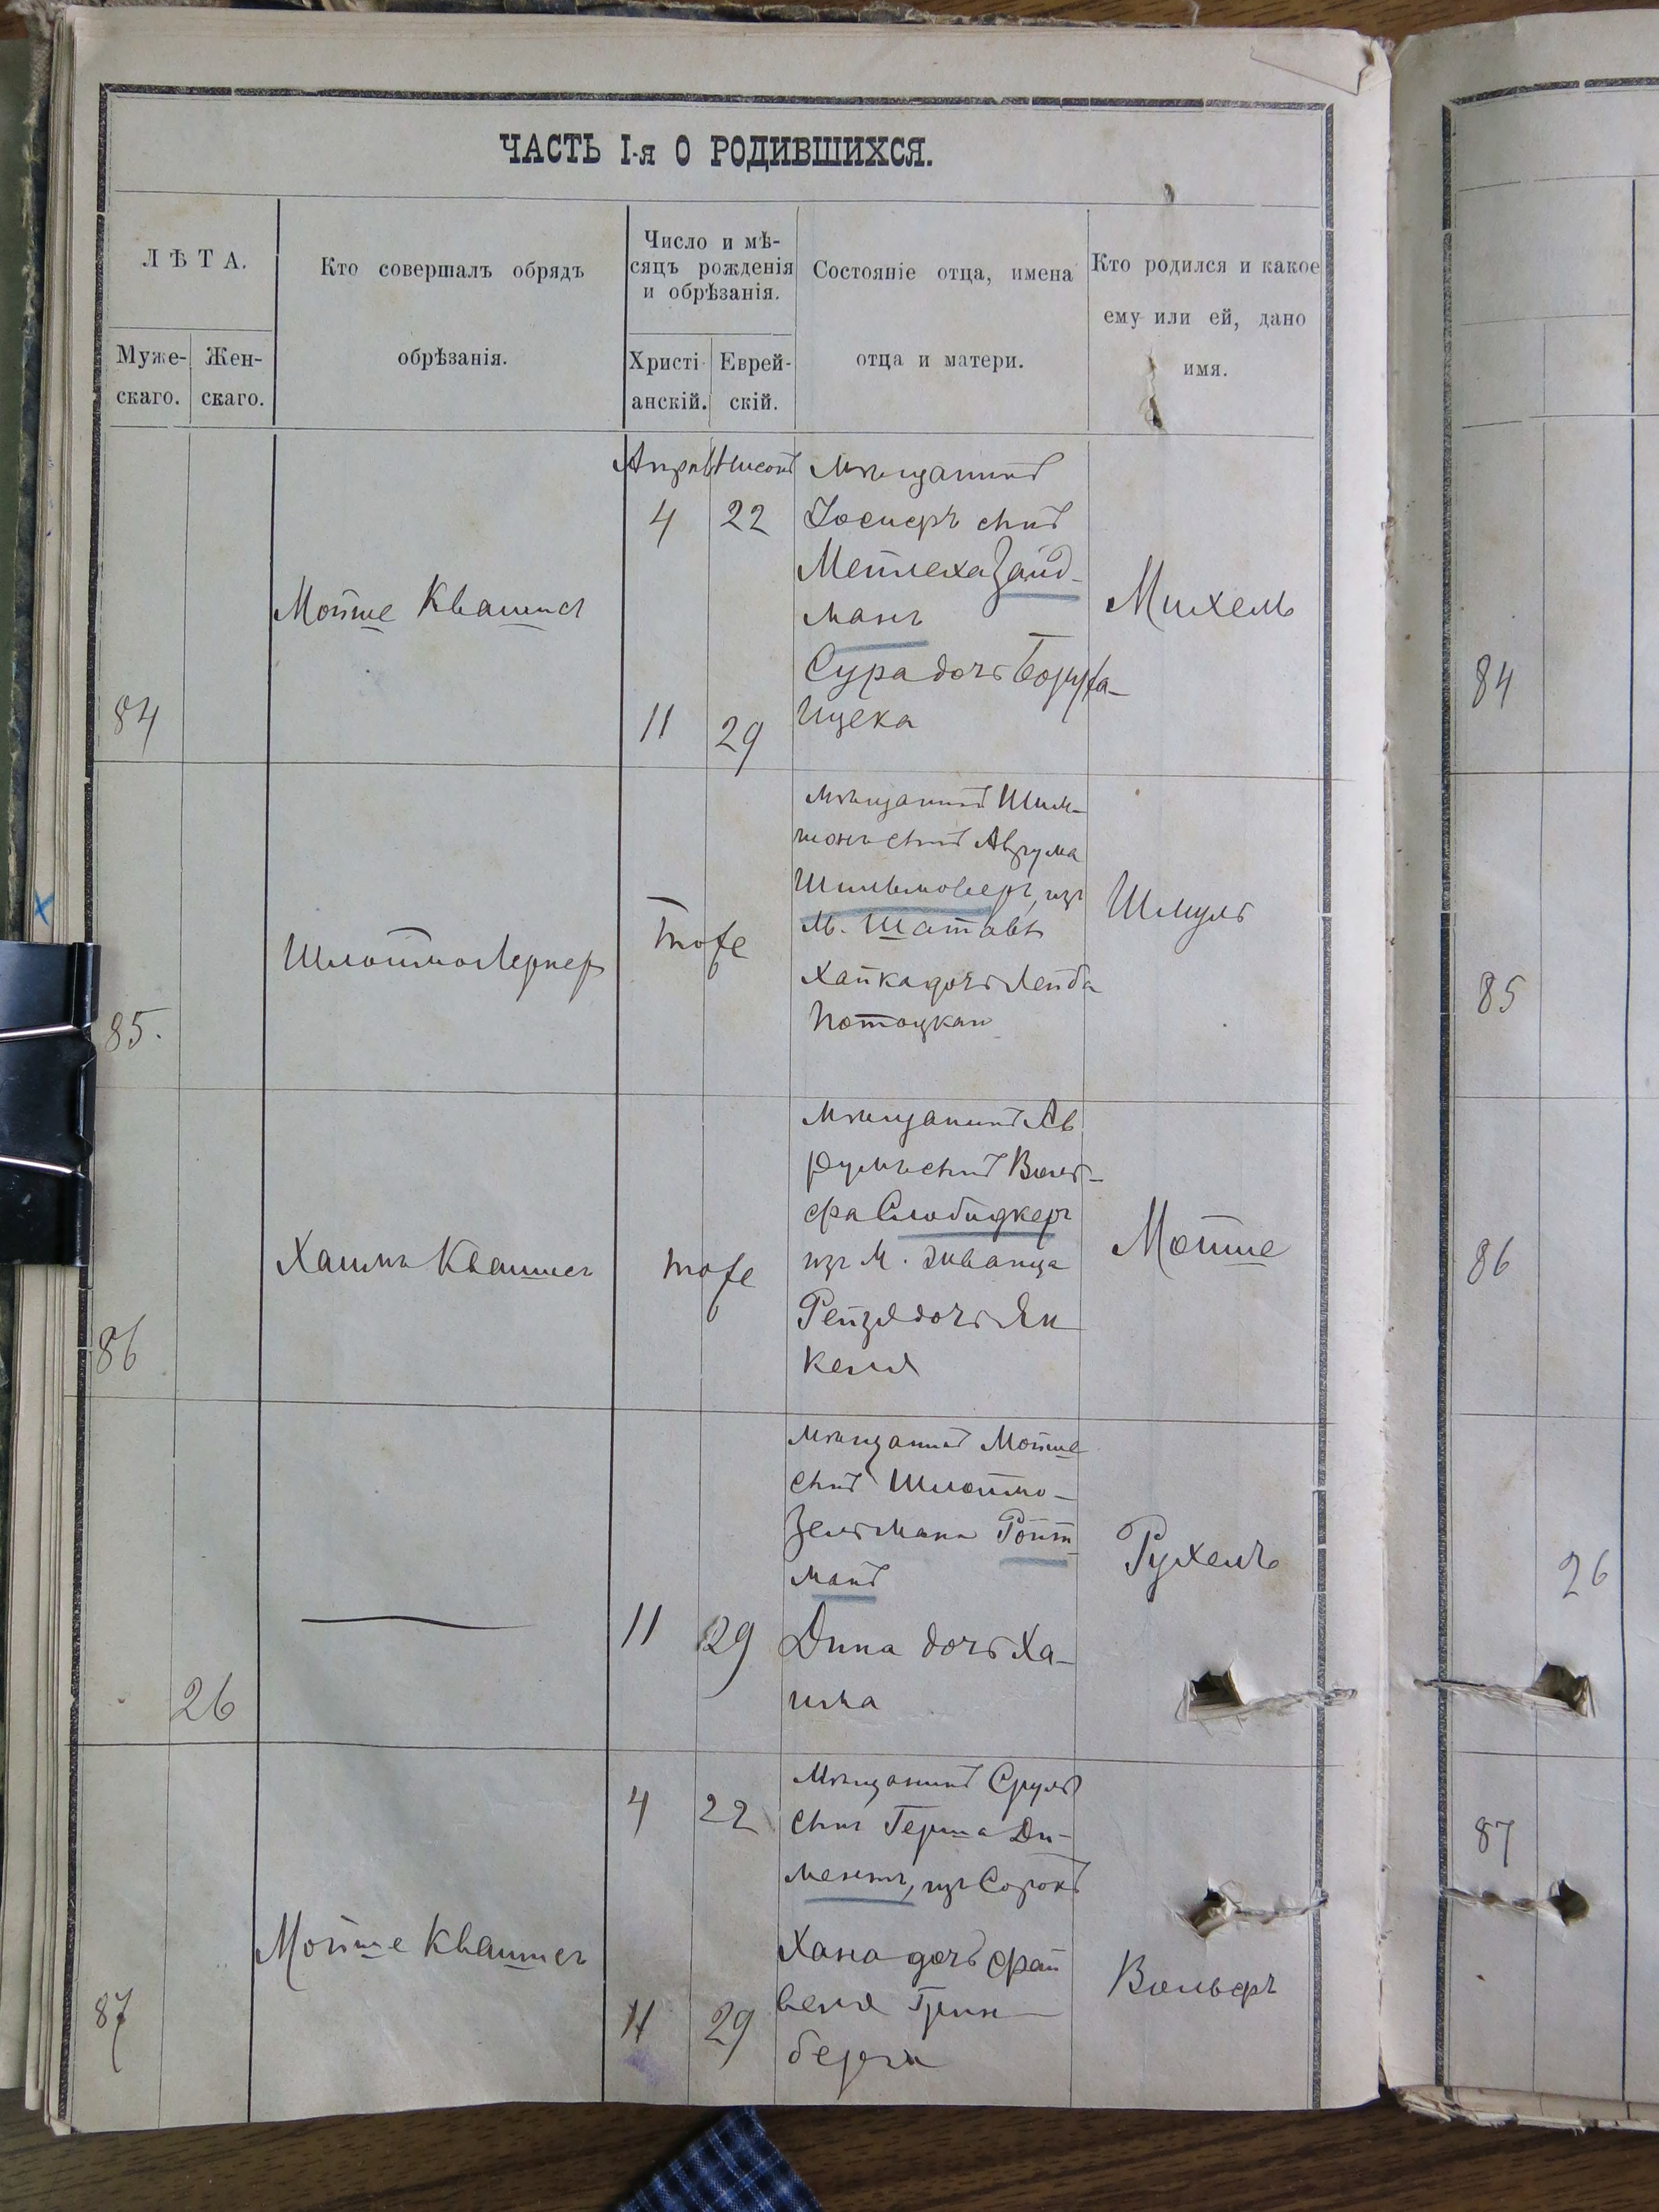 ЧАСТЬ I-я О РОДИВШИХСЯ.
ЛѢТА.
Муже-
скаго.
Жен-
скаго.
Кто совершалъ обрядъ
обрѣзанія.
Число и мѣ-
сяцъ рожденія
и обрѣзанія.
Христі-
анскій.
Еврей-
скій.
Состояніе отца, имена
отца и матери.
Кто родился и какое
ему или ей, дано
имя.
84
Мойше Квашисъ
4
22
11
29
мѣщанинъ
Іосифъ сынъ
Мейлеха Зайд-
манъ
Сура дочь Боруха-
Ицека
Михель
84
85.
Шлоймо Лернеръ
тоже
мѣщанинъ Шим-
шонъ сынъ Аврума
изъ
м. Шатавы
Хайка дочь Лейба
Потоцкая
Шмуль
85
86
Хаимъ Квашисъ
тоже
мѣщанинъ Ав
румъ сынъ Воль-
фа Слободкеръ
изъ м. Жванца
Рейзя дочь Ян
келя
Мойше
86
26
11
29
мѣщанинъ Мойше
сынъ Шлоймо-
Зельмана Ройт
манъ
Дина дочь Ха-
има
Рухель
26
87
Мойше Квашисъ
4
22
11
29
Мѣщанинъ Сруль
сынъ Герша Ди-
ментъ, изъ Сорокъ
Хана дочь Фай
веля Грин-
берга
Вольфъ
87